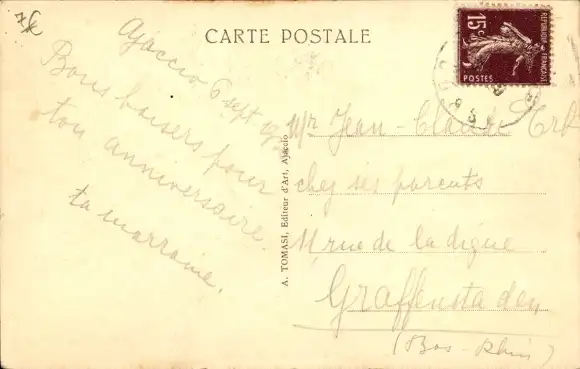 7€
CARTE POSTALE
REPUBLIQUE FRANÇAISE
15c
POSTES
Ajaccio 6 sept
Bons baisers pour
ton anniversaire.
ta marraine.
A. TOMASI, Editeur d'Art, Ajaccio
Mr Jean-Claude
chez ses parents
11, rue de la digue
Graffenstaden
(Bas-Rhin)